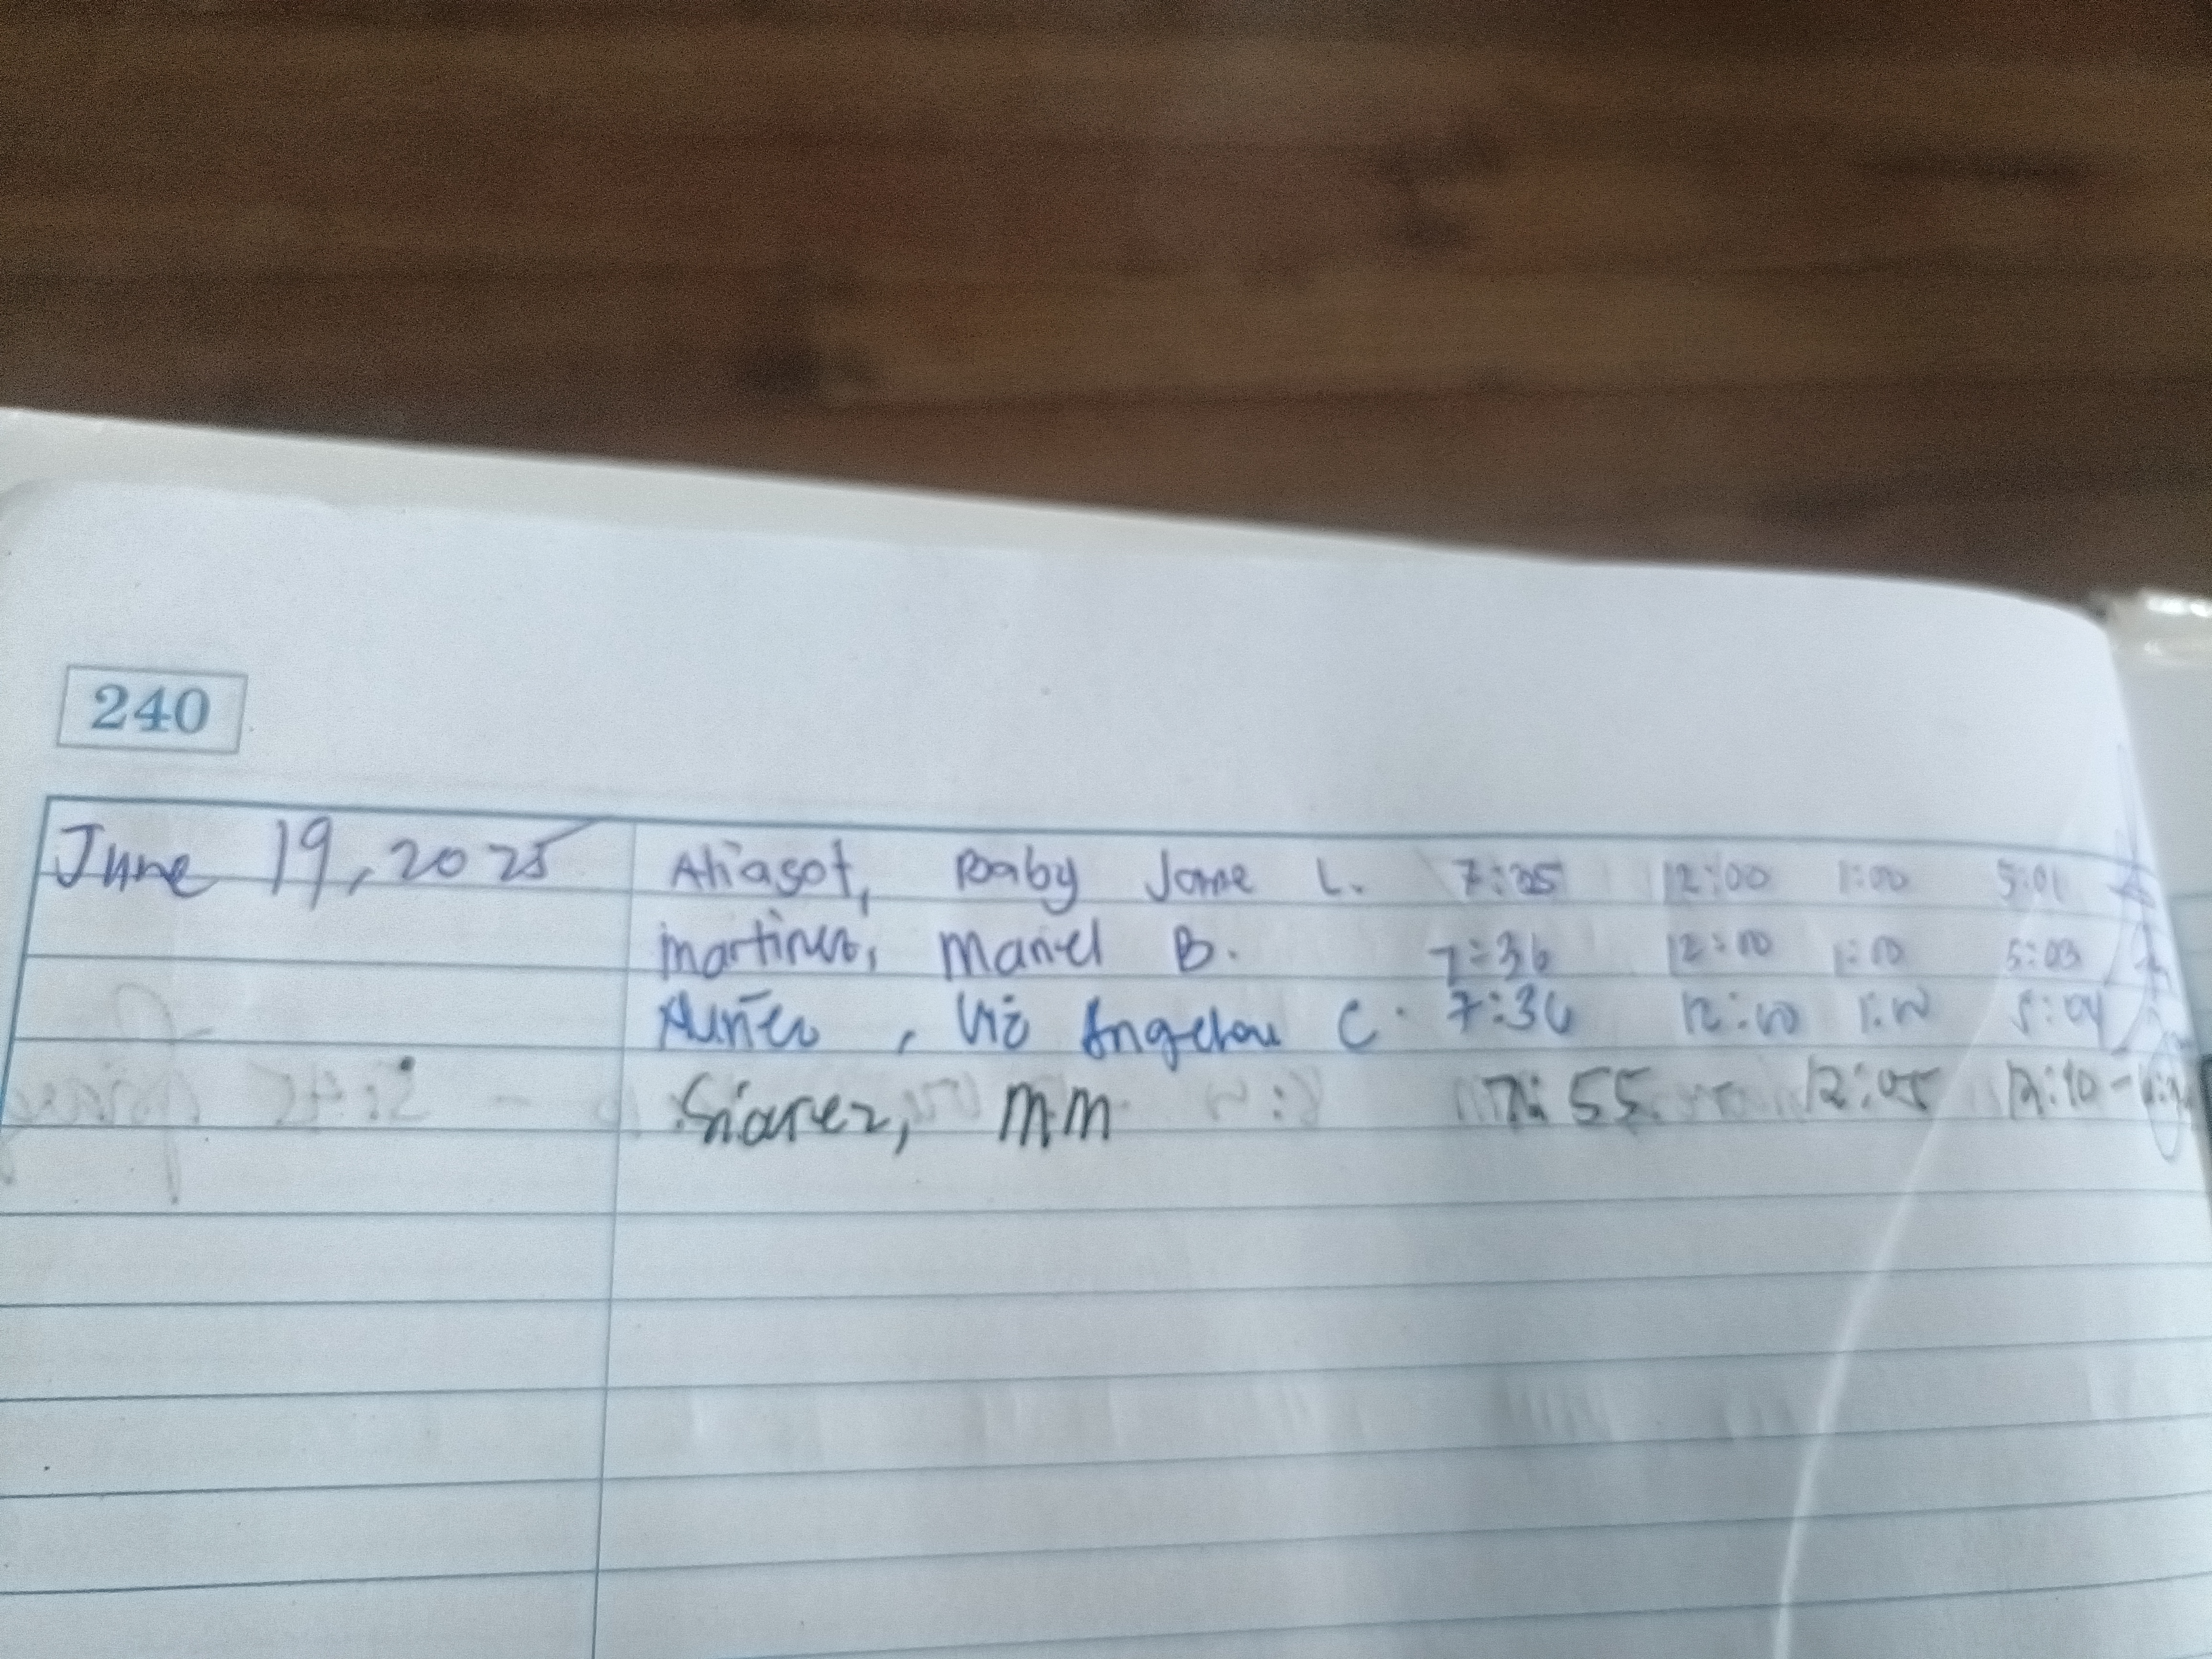 240
June 19, 2025 Aliasot, Baby Jane L. 7:25 12:00 1:00 5:01
Martinez, Manel B. 7:36 12:00 1:00 5:03
C. 7:36 12:00 1:00 5:04
Siarez, MM 7:55 12:05 12:10